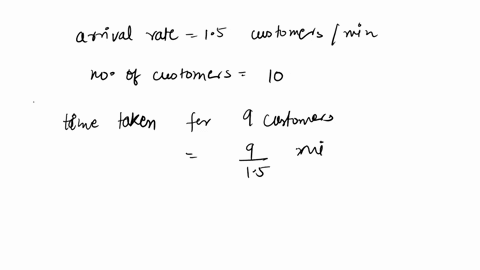 arrival rate = 1.5 customers / min
no. of customers = 10
time taken for 9 customers
= 9/1.5 mi